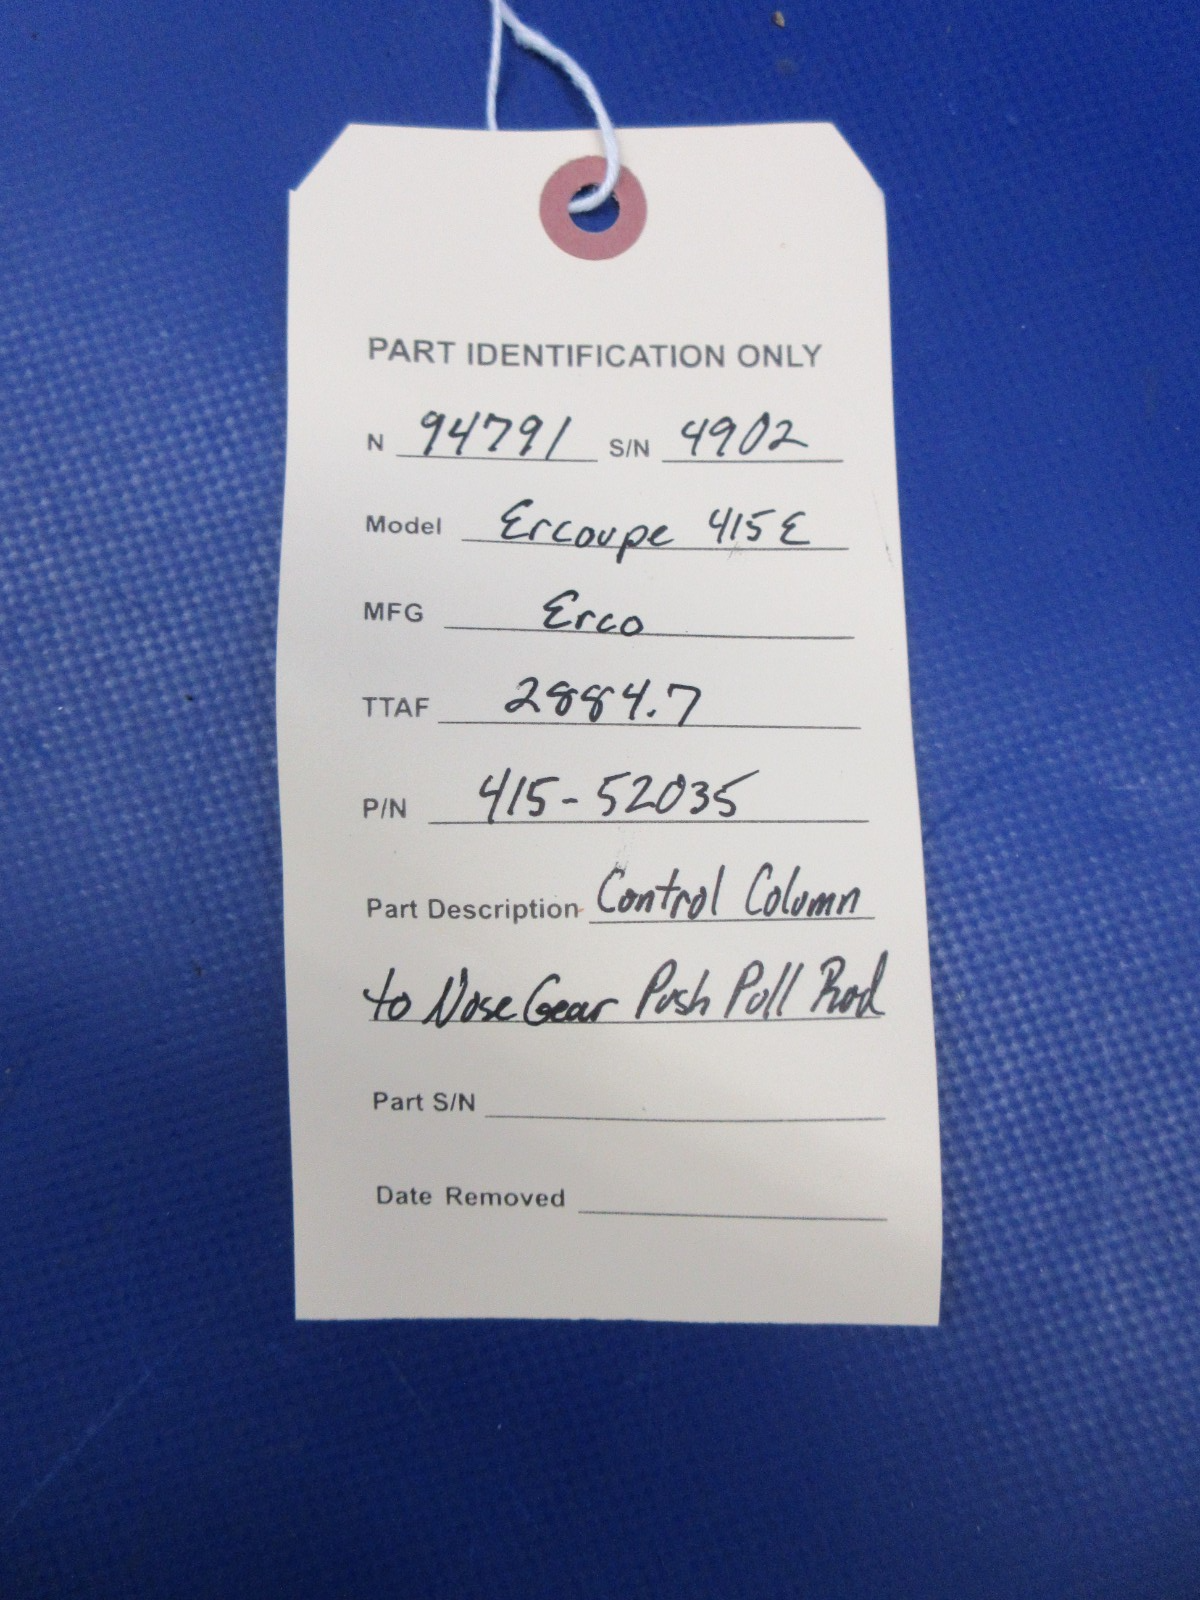 PART IDENTIFICATION ONLY
N 94791 S/N 4902
Model Ercoupe 415E
MFG Erco
TTAF 2884.7
P/N 415-52035
Part Description Control Column
to Nose Gear Push Pull Rod
Part S/N
Date Removed